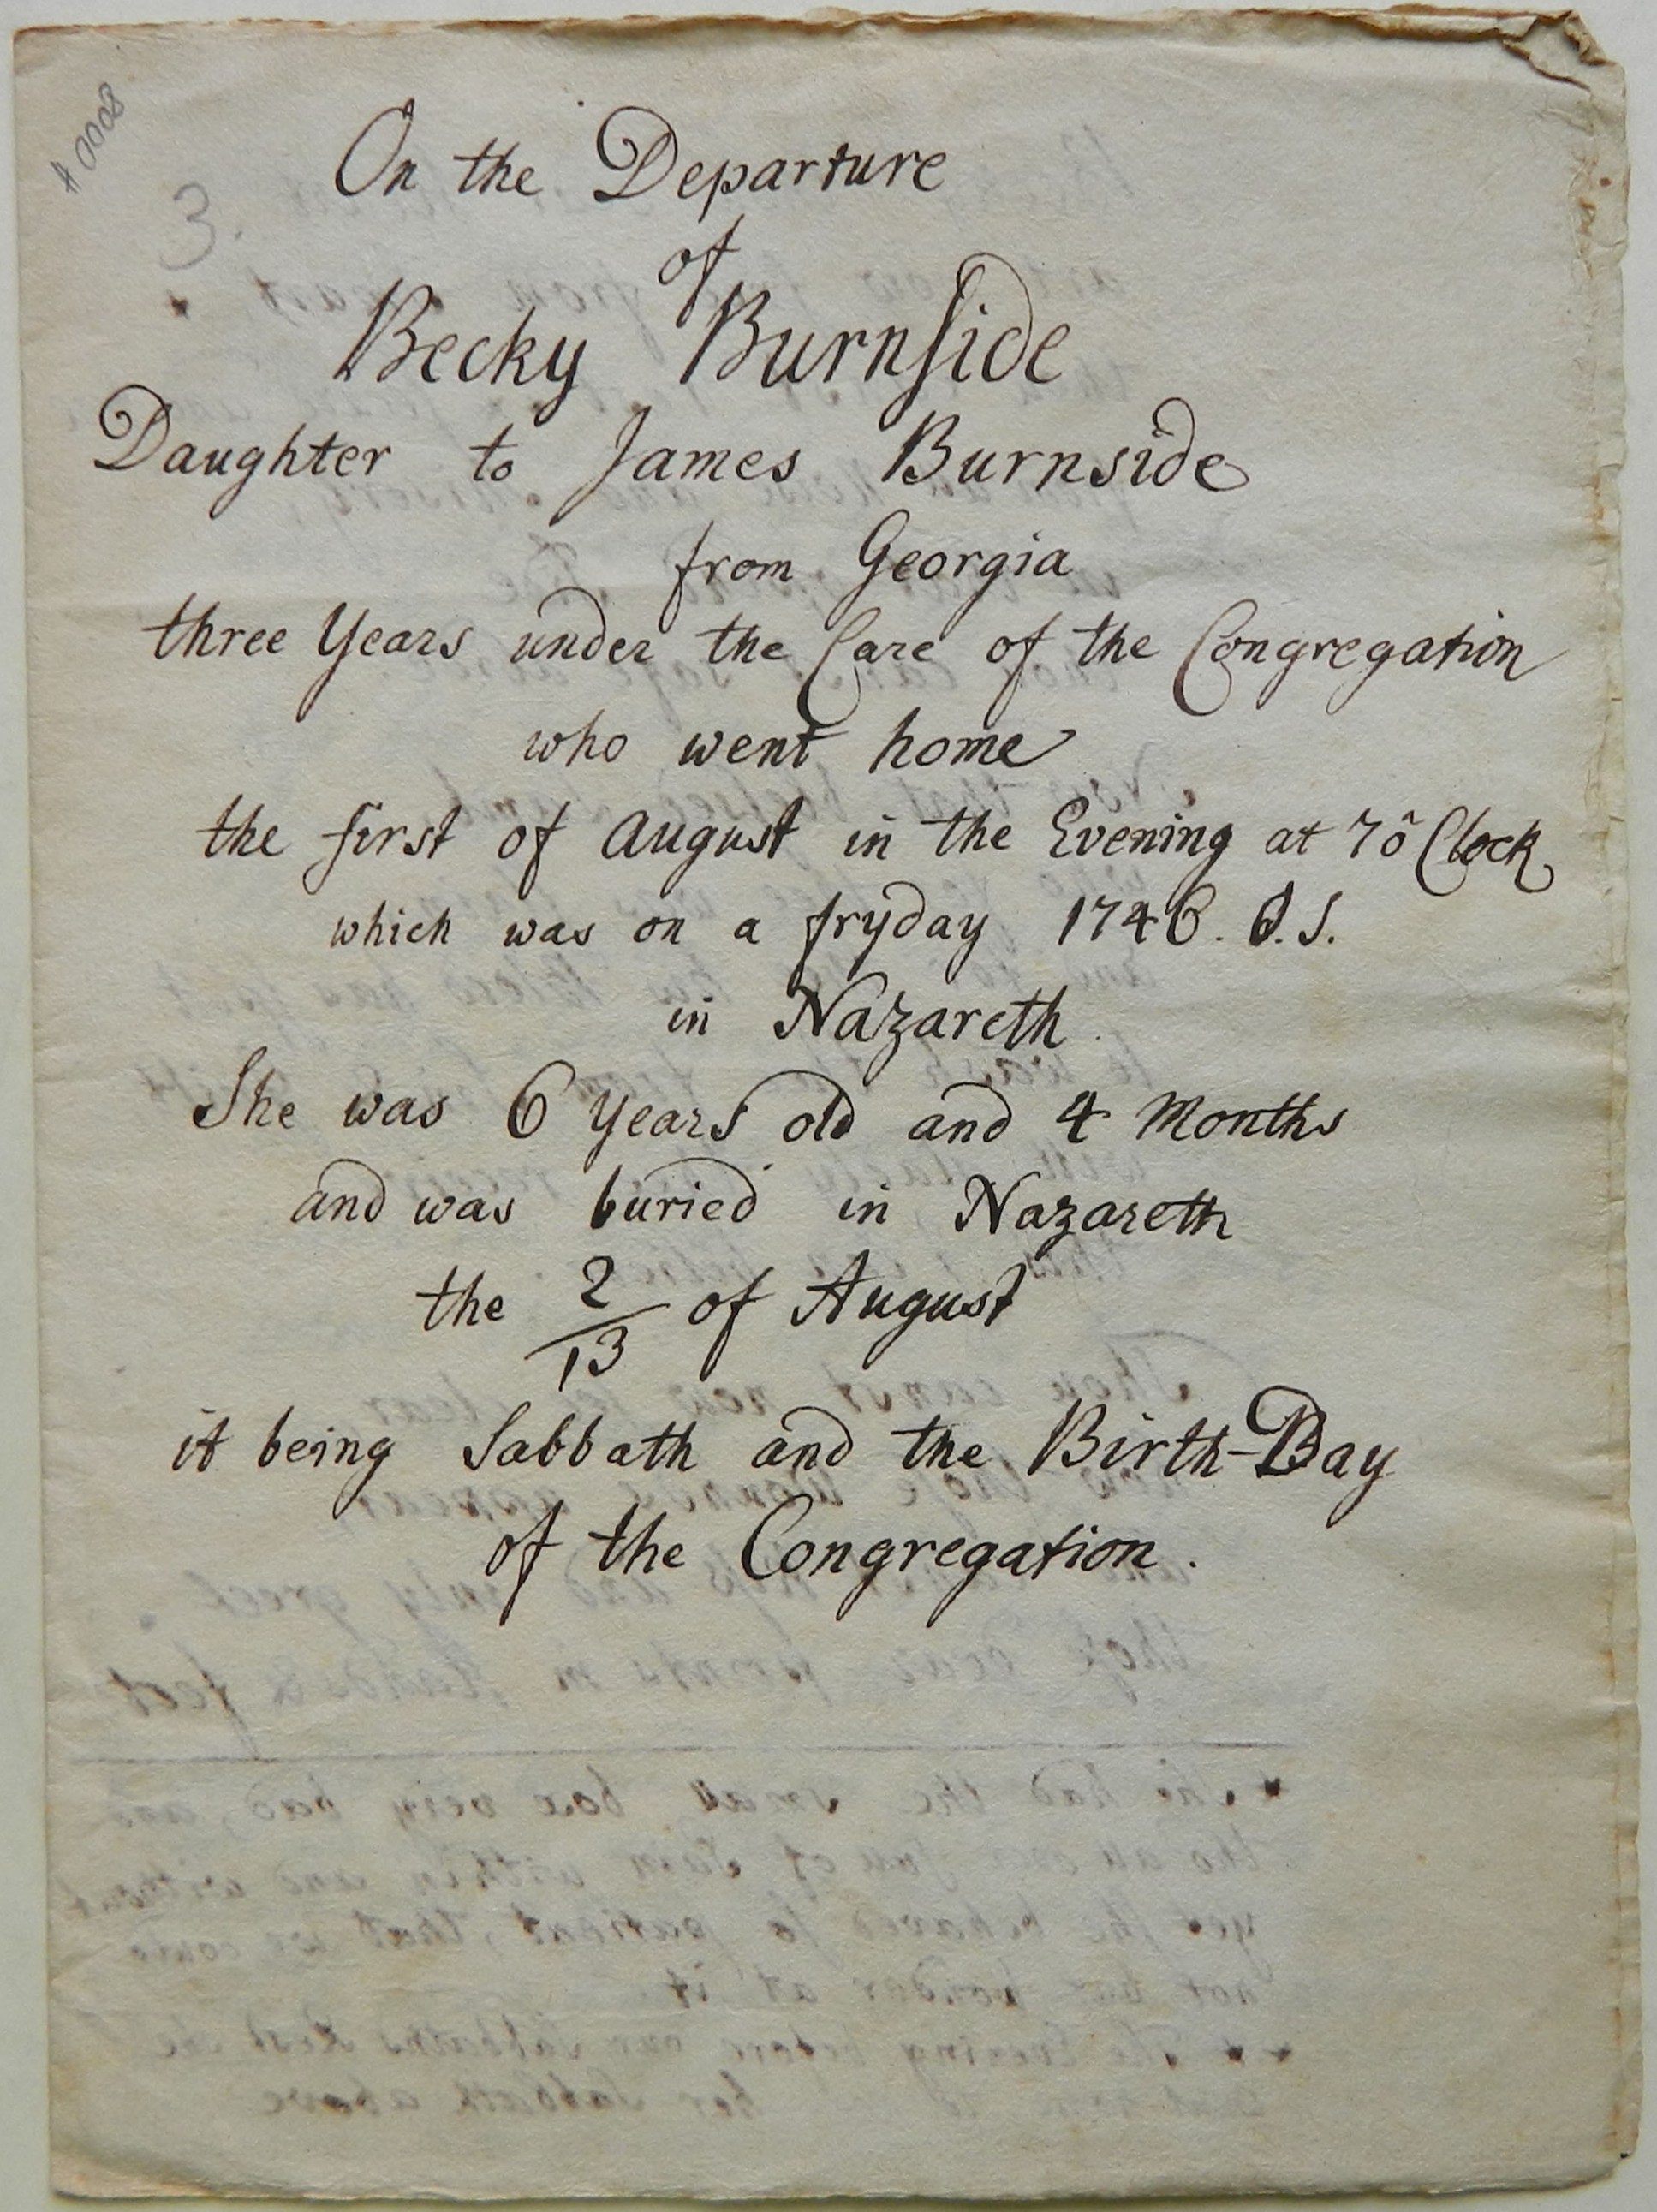 A 0008
3.
On the Departure
of
Becky Burnſide
Daughter to James Burnside
from Georgia
three Years under the Care of the Congregation
who went home
the first of August in the Evening at 7 ô Clock
which was on a fryday 1746. O.S.
in Nazareth.
She was 6 Years old and 4 Months
and was buried in Nazareth
the 2/13 of August
it being Sabbath and the Birth-Day
of the Congregation.